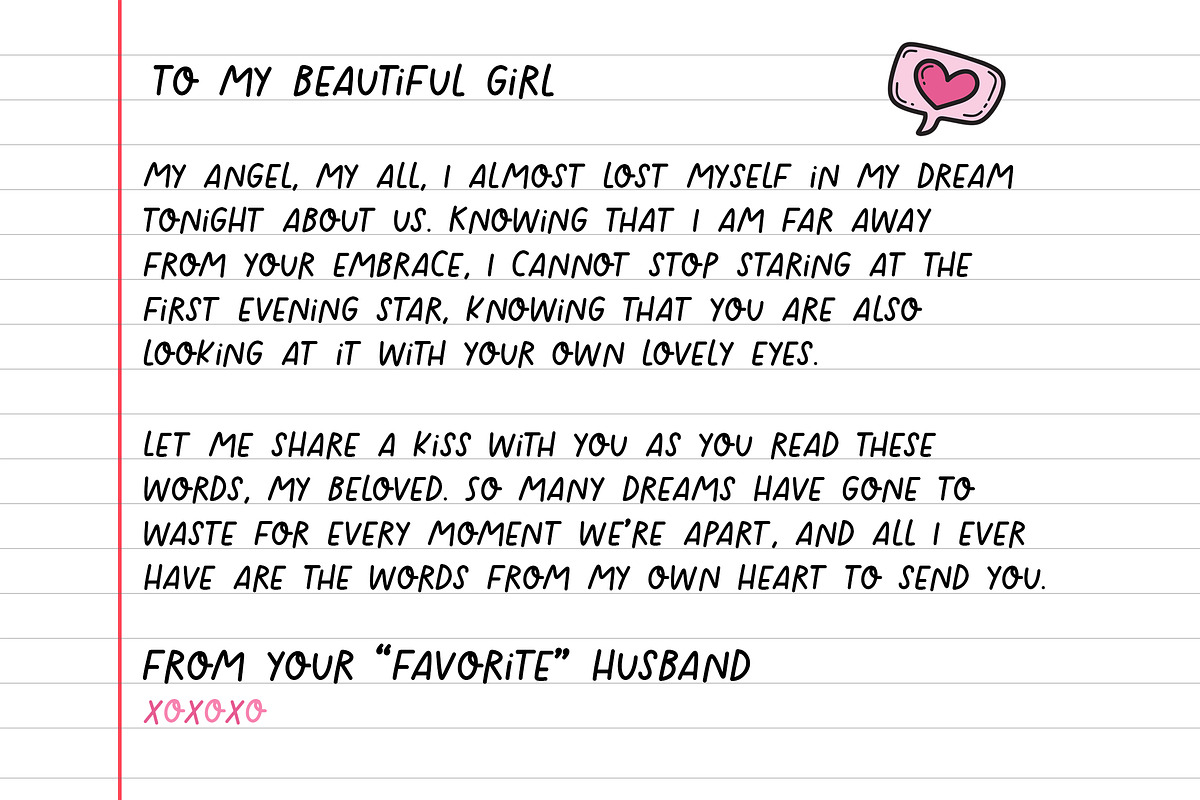 TO MY BEAUTiFUL GiRL
MY ANGEL, MY ALL, I ALMOST LOST MYSELF iN MY DREAM
TONiGHT ABOUT US. KNOWiNG THAT I AM FAR AWAY
FROM YOUR EMBRACE, I CANNOT STOP STARiNG AT THE
FiRST EVENiNG STAR, KNOWiNG THAT YOU ARE ALSO
LOOKiNG AT iT WiTH YOUR OWN LOVELY EYES.
LET ME SHARE A KiSS WiTH YOU AS YOU READ THESE
WORDS, MY BELOVED. SO MANY DREAMS HAVE GONE TO
WASTE FOR EVERY MOMENT WE'RE APART, AND ALL I EVER
HAVE ARE THE WORDS FROM MY OWN HEART TO SEND YOU.
FROM YOUR “FAVORiTE” HUSBAND
XOXOXO